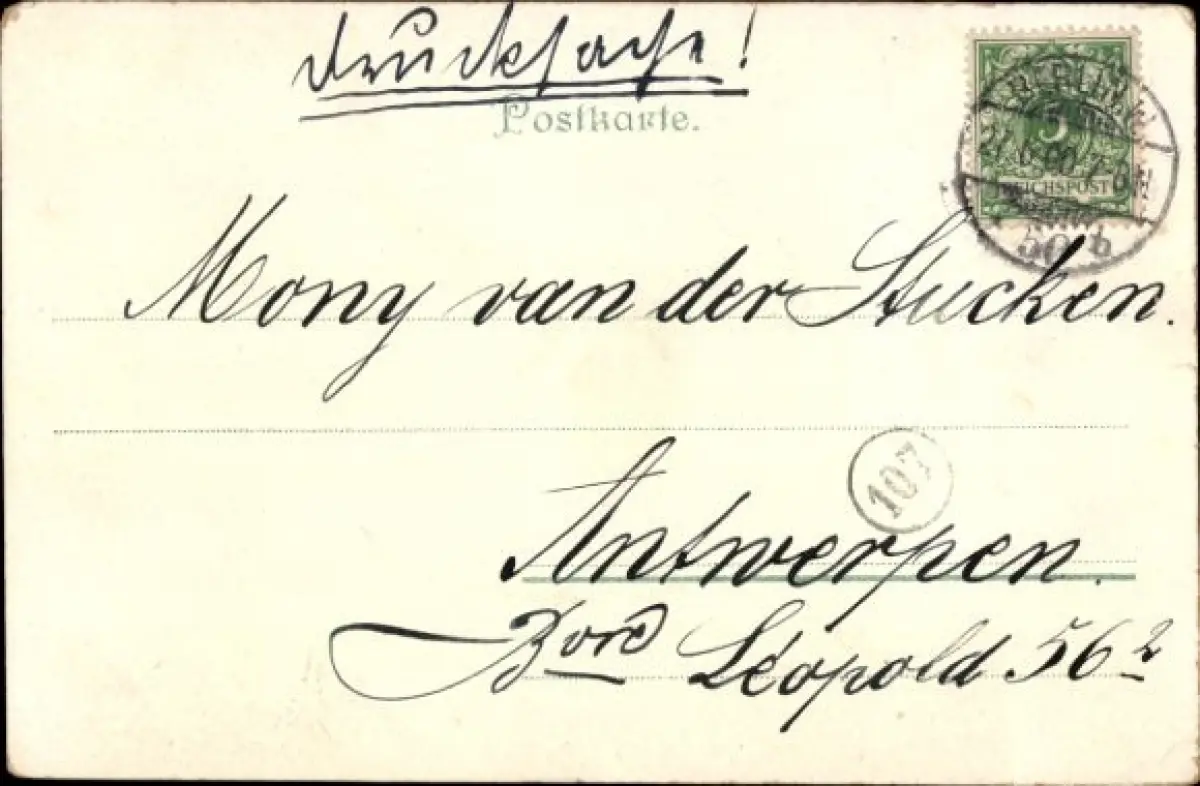 Drucksache!
Postkarte.
5
REICHSPOST
BERLIN.W.
50 b
Mony van der Stucken.
107
Antwerpen.
Bord Léopold 56²